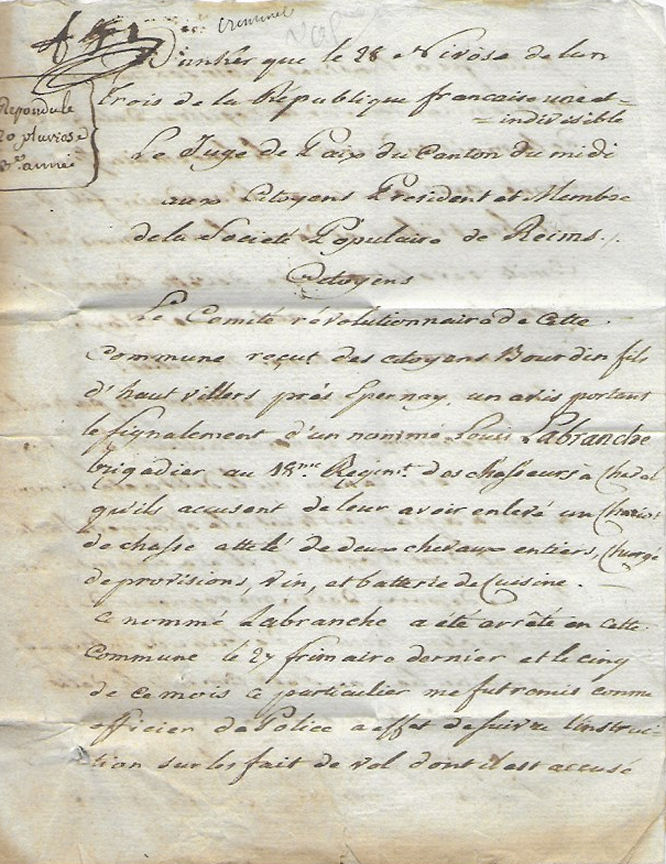 criminel
Vol
Dunkerque le 28 Nivôse de lan
trois de la République francaise une et
indivisible
Repondu le
20 pluviose
3e année
Le Juge de Paix du Canton du midi
aux Citoyens President et Membre
de la Societé Populaire de Reims.
Citoyens
Le Comité révolutionnaire de cette
Commune reçut des citoyens Bourdin fils
d'hautvillers prés Epernay, un avis portant
le signalement d'un nommé Louis Labranche
brigadier au 18me Regimt. des chasseurs a Cheval
qu'ils accusent de leur avoir enlevé un Chariot
de chasse attelé de deux chevaux entiers, Chargé
de provisions, vin, et batterie de Cuisine.
Ce nommé Labranche a été arrêté en cette
Commune le 27 frimaire dernier et le cinq
de ce mois ce particulier me fut remis comme
officier de Police a effet de suivre l'instruc-
tion sur les fait de vol dont il est accusé